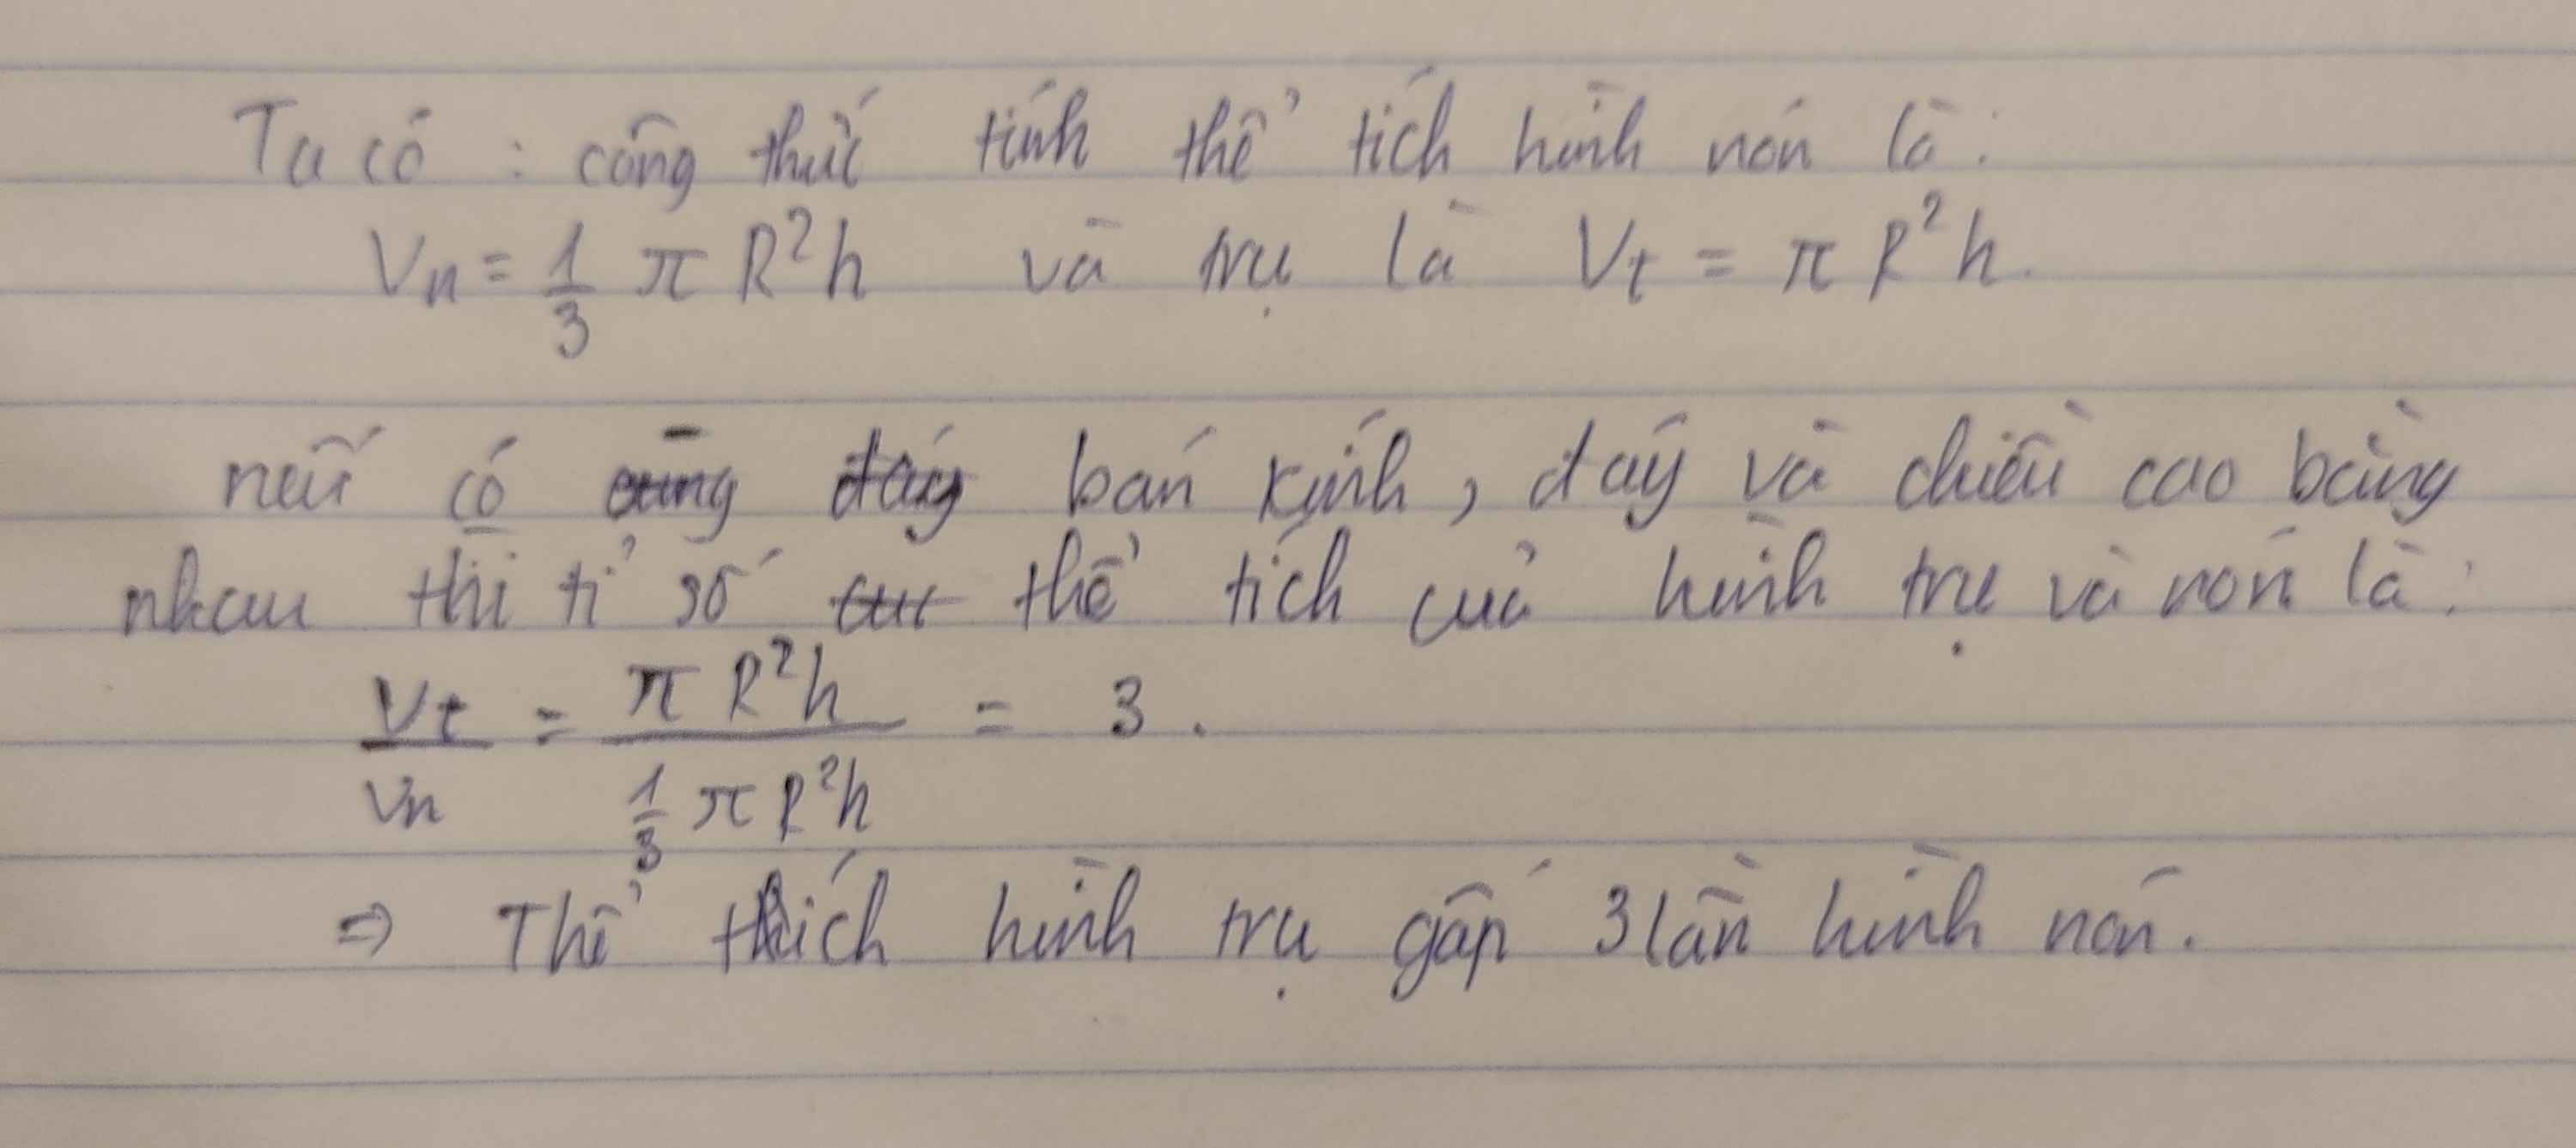 Ta có : công thức tính thể tích hình nón là:
Vn = 1/3 π R²h và trụ là Vt = π R²h.
nếu có cùng đáy bán kính, đáy và chiều cao bằng
nhau thì tỉ số thể tích của hình trụ và nón là:
Vt/Vn = π R²h / (1/3 π R²h) = 3.
⇒ Thể tích hình trụ gấp 3 lần hình nón.